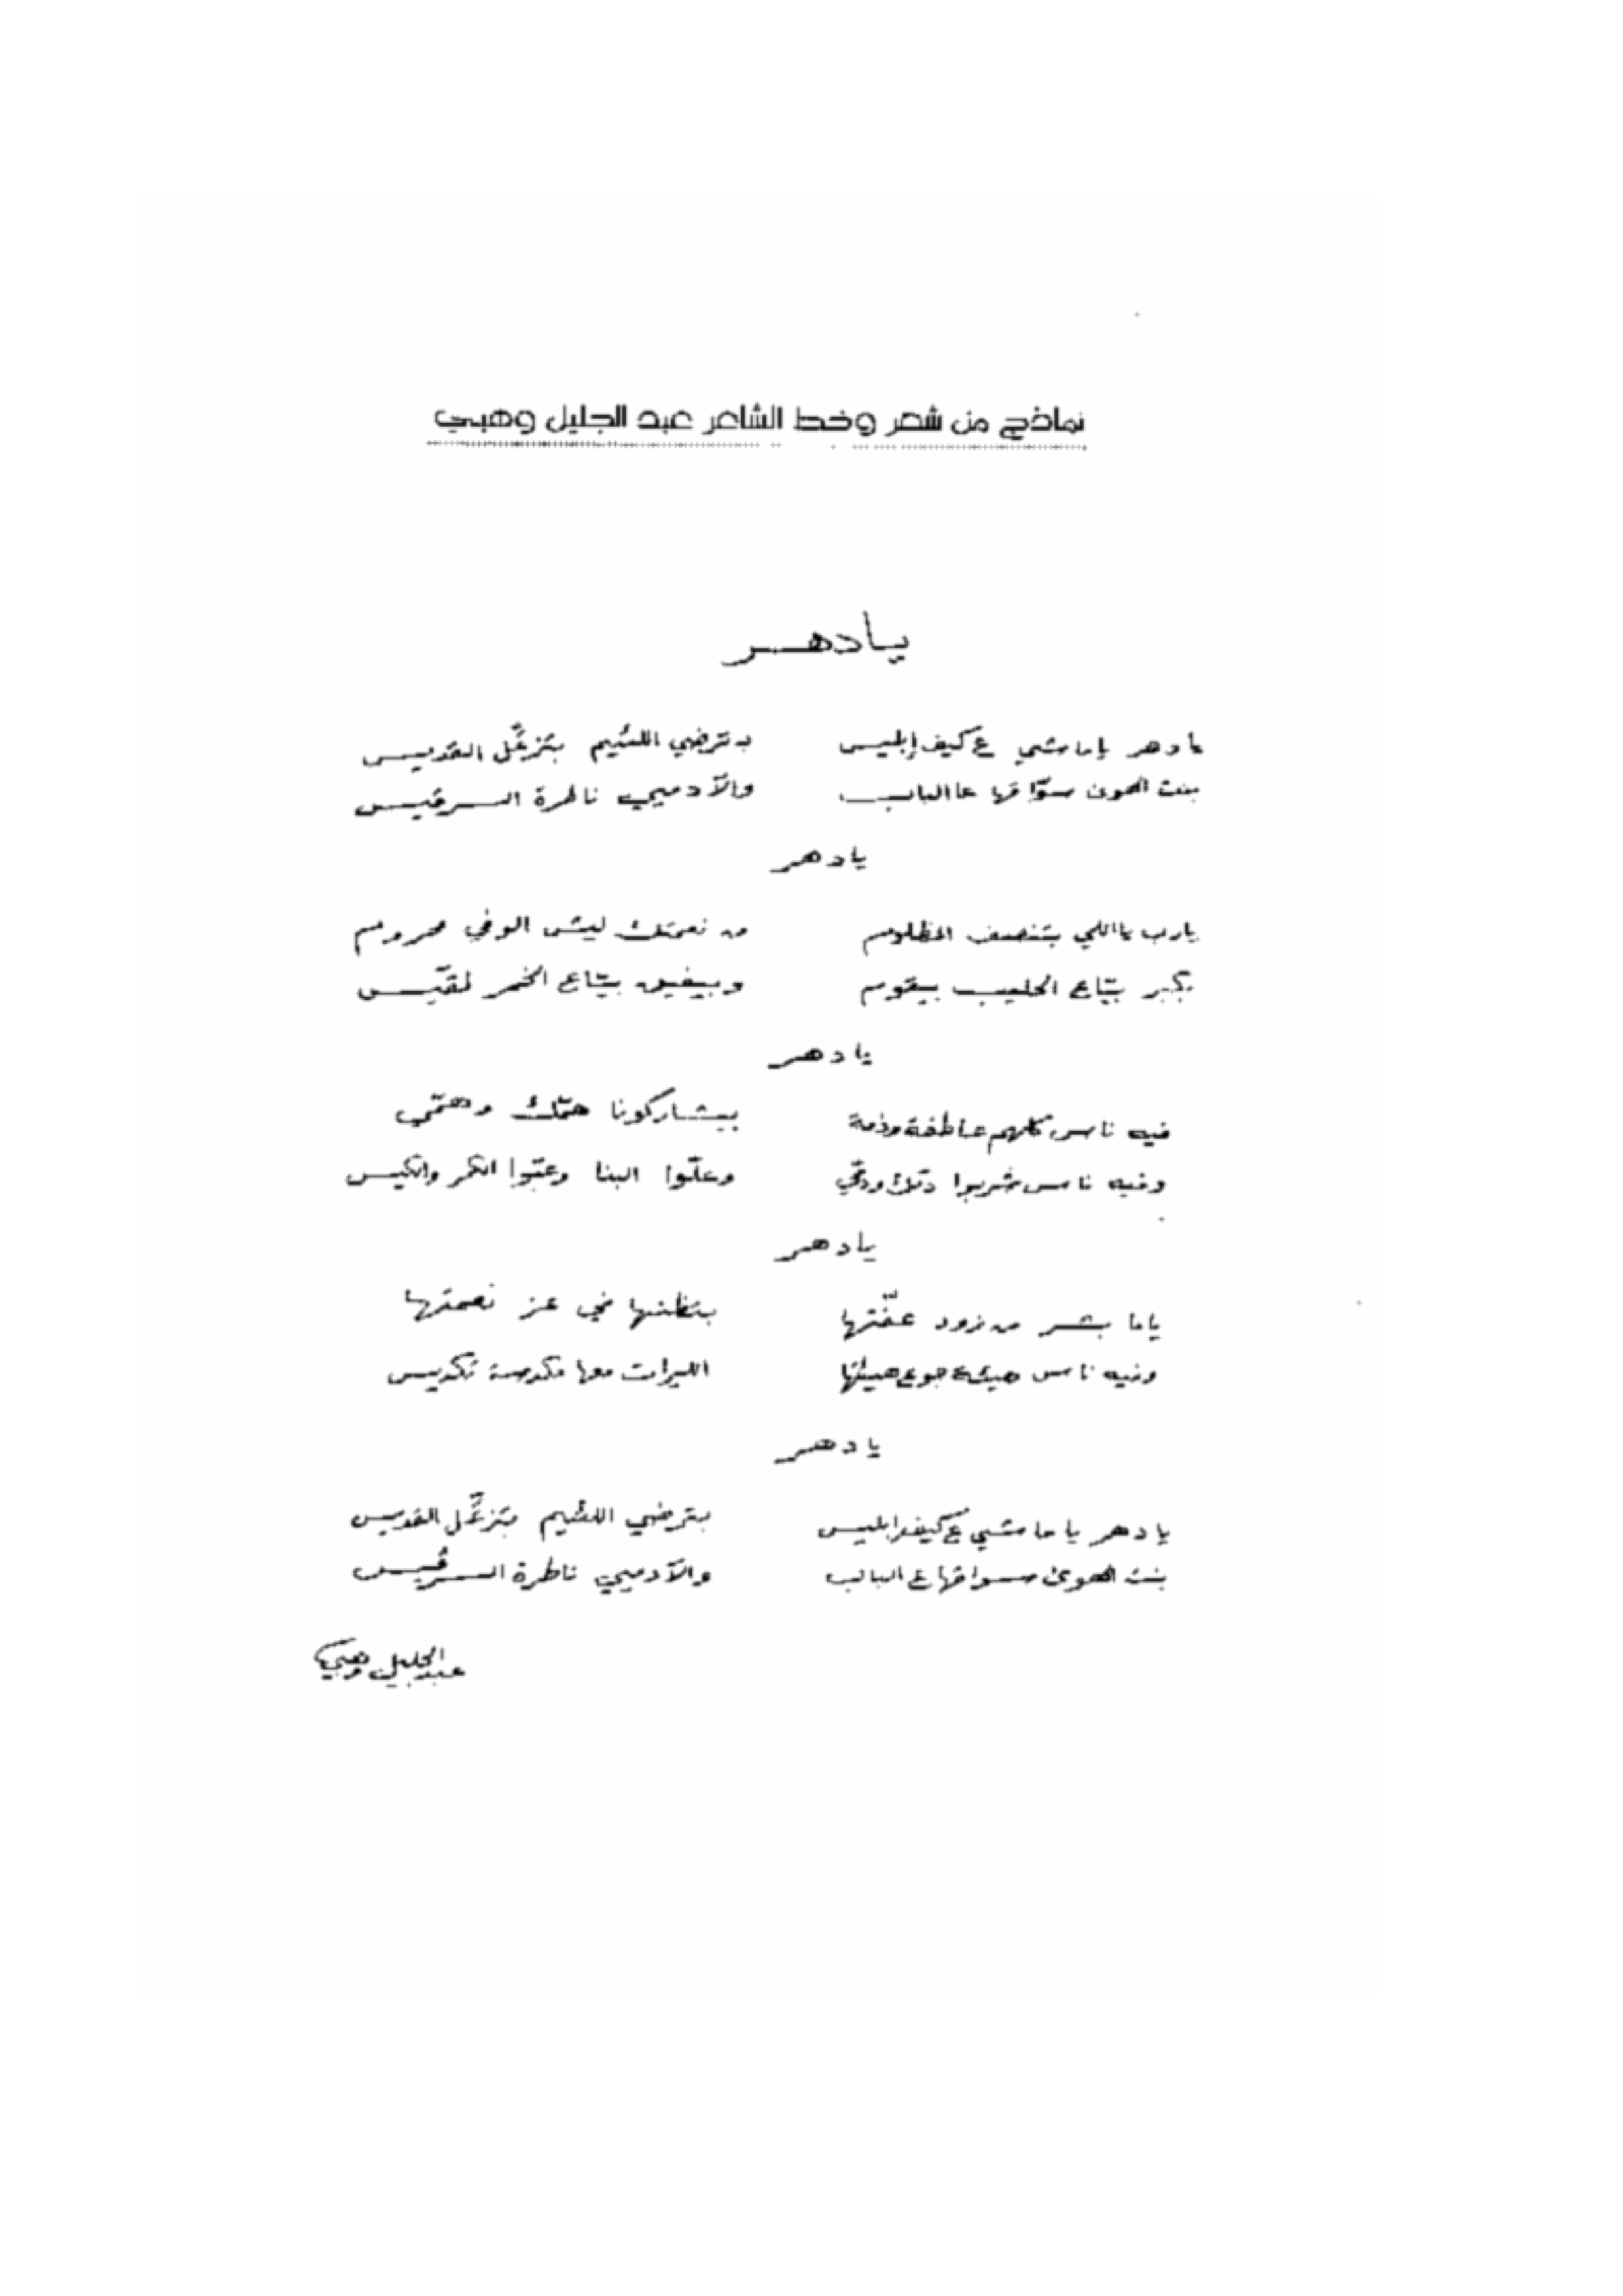 نماذج من شعر وخط الشاعر عبد الجليل وهبي
يا دهر
يا دهر ياما مشي ع كيف إبليس بترضي اللئيم بتزعّل القديس
بنت الهوى سوّاقها عا الباب والآدمي ناطرة السرفيس
يا دهر
يارب يااللي بتنصف المظلوم من نعمتك ليش الوفي محروم
بكير بيّاع الحليب بيقوم وبيفيق بيّاع الخمر لقّيس
يا دهر
فيه ناس كلهم عاطفة وذمة بيشاركونا همّك وهمّي
وفيه ناس شربوا دمّك ودمّي وعلّوا البنا وعبّوا الكمر والكيس
يا دهر
ياما بشر من زود عفّتها بتظنها في عز نعمتها
وفيه ناس هيئة جوع هيئتها الليرات معها مكدسة تكديس
يا دهر
يا دهر ياما مشي ع كيف ابليس بترضي اللئيم بتزعّل القديس
بنت الهوى سواقها ع الباب والآدمي ناطرة السرفيس
عبد الجليل وهبي